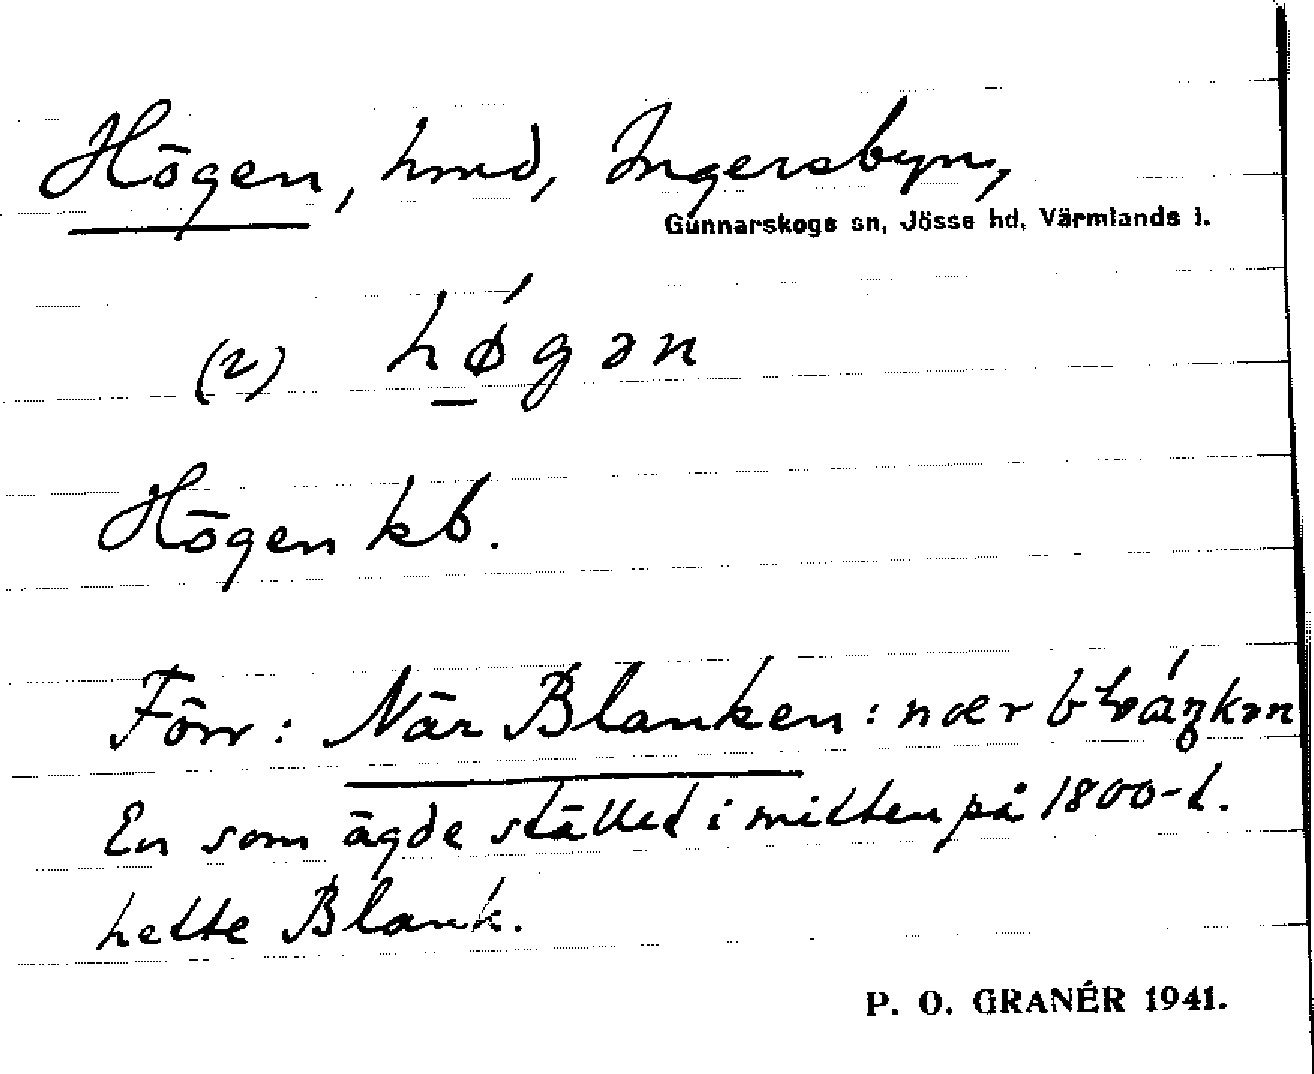 Högen, hmd, Ingersbyn,
Gunnarskogs sn, Jösse hd, Värmlands l.
(2) hǿgən
Högen kb.
Förr: När Blanken: nær
En som ägde stället i mitten på 1800-t.
hette Blank.
P. O. GRANÉR 1941.